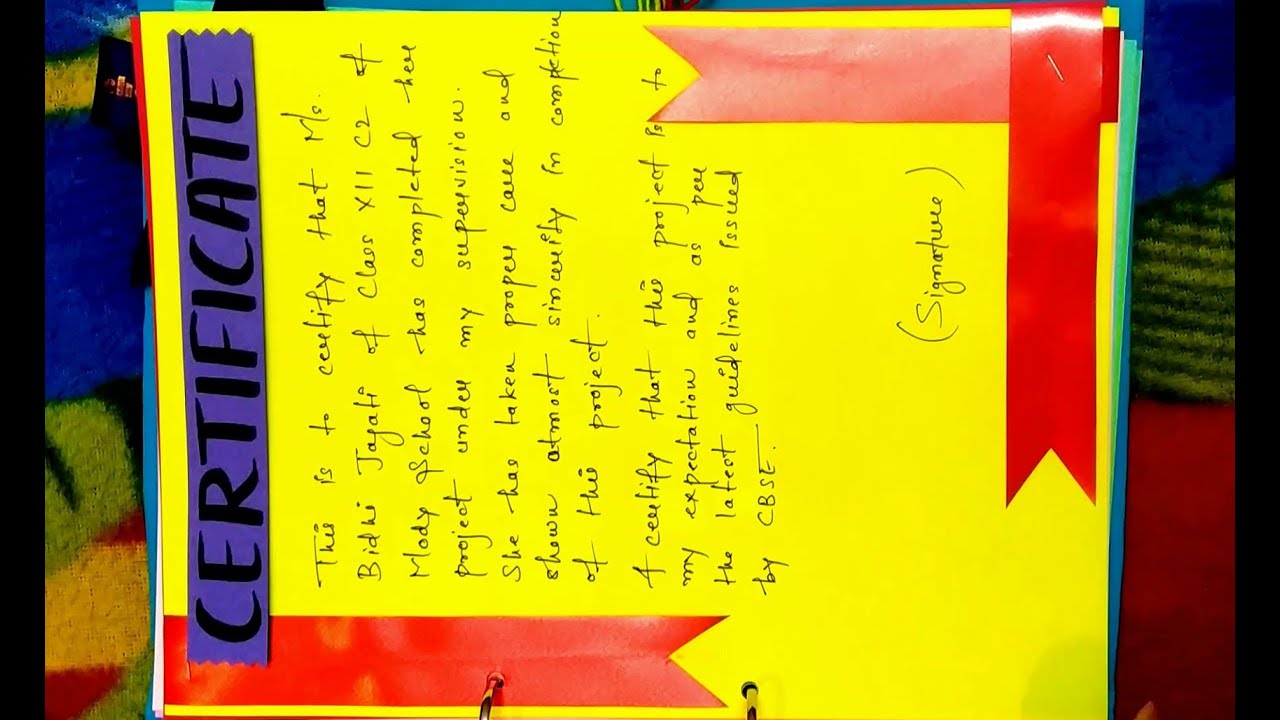 CERTIFICATE
This is to certify that M/s.
Bidhi Jayati of Class XII C2 of
Mody School has completed her
project under my supervision.
She has taken proper care and
shown atmost sincerity in completion
of this project.
I certify that this project is to
my expectation and as per
the latest guidelines issued
by CBSE.
(Signature)